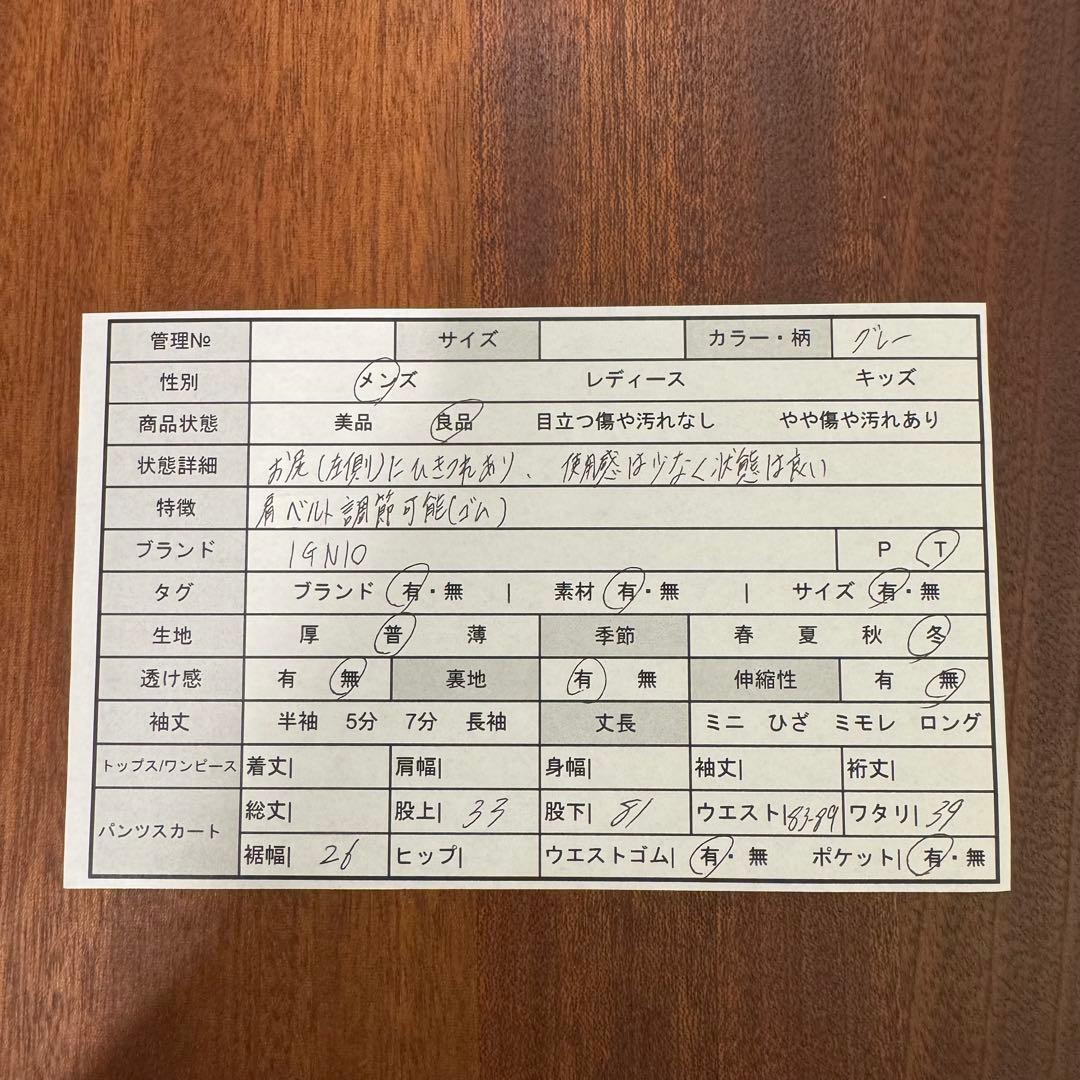 管理№ サイズ カラー・柄 グレー
性別 メンズ レディース キッズ
商品状態 美品 良品 目立つ傷や汚れなし やや傷や汚れあり
状態詳細 お尻(左側)にひきつれあり、使用感は少なく状態は良い
特徴 肩ベルト調節可能(ゴム)
ブランド IGNIO P T
タグ ブランド 有・無 | 素材 有・無 | サイズ 有・無
生地 厚 普 薄 季節 春 夏 秋 冬
透け感 有 無 裏地 有 無 伸縮性 有 無
袖丈 半袖 5分 7分 長袖 丈長 ミニ ひざ ミモレ ロング
トップス/ワンピース 着丈| 肩幅| 身幅| 袖丈| 裄丈|
パンツスカート 総丈| 股上| 33 股下| 81 ウエスト| 83-89 ワタリ| 39
裾幅| 26 ヒップ| ウエストゴム| 有・無 ポケット| 有・無